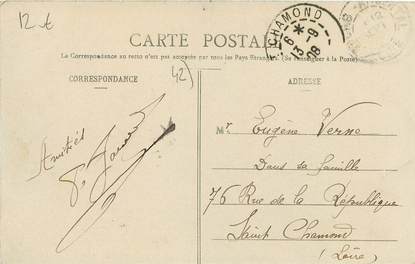 12 €
CHAMOND
6 *
3 -9
08
CARTE POSTALE
La Correspondance au verso n'est pas acceptée par tous les Pays Étrangers. (Se renseigner à la Poste)
CORRESPONDANCE
42)
ADRESSE
Amitiés
Mr Eugène Verne
Dans sa famille
76 Rue de la République
Saint Chamond
(Loire)